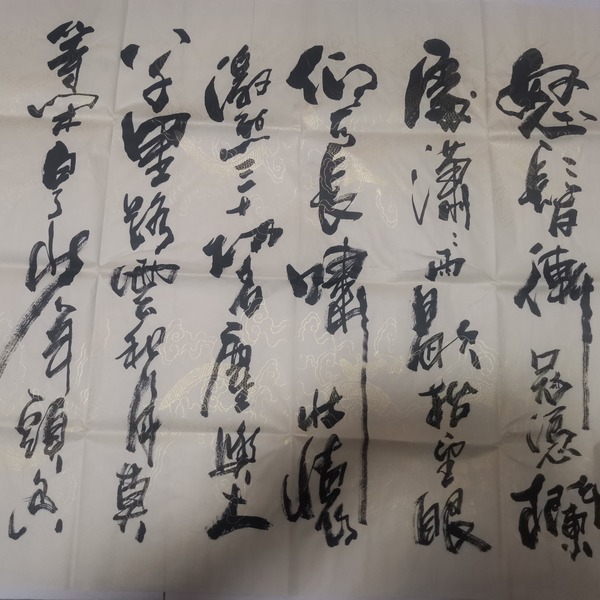 怒髮衝冠憑欄
處瀟瀟雨歇抬望眼
仰天長嘯壯懷
激烈三十功名塵與土
八千里路雲和月莫
等閒白了少年頭空